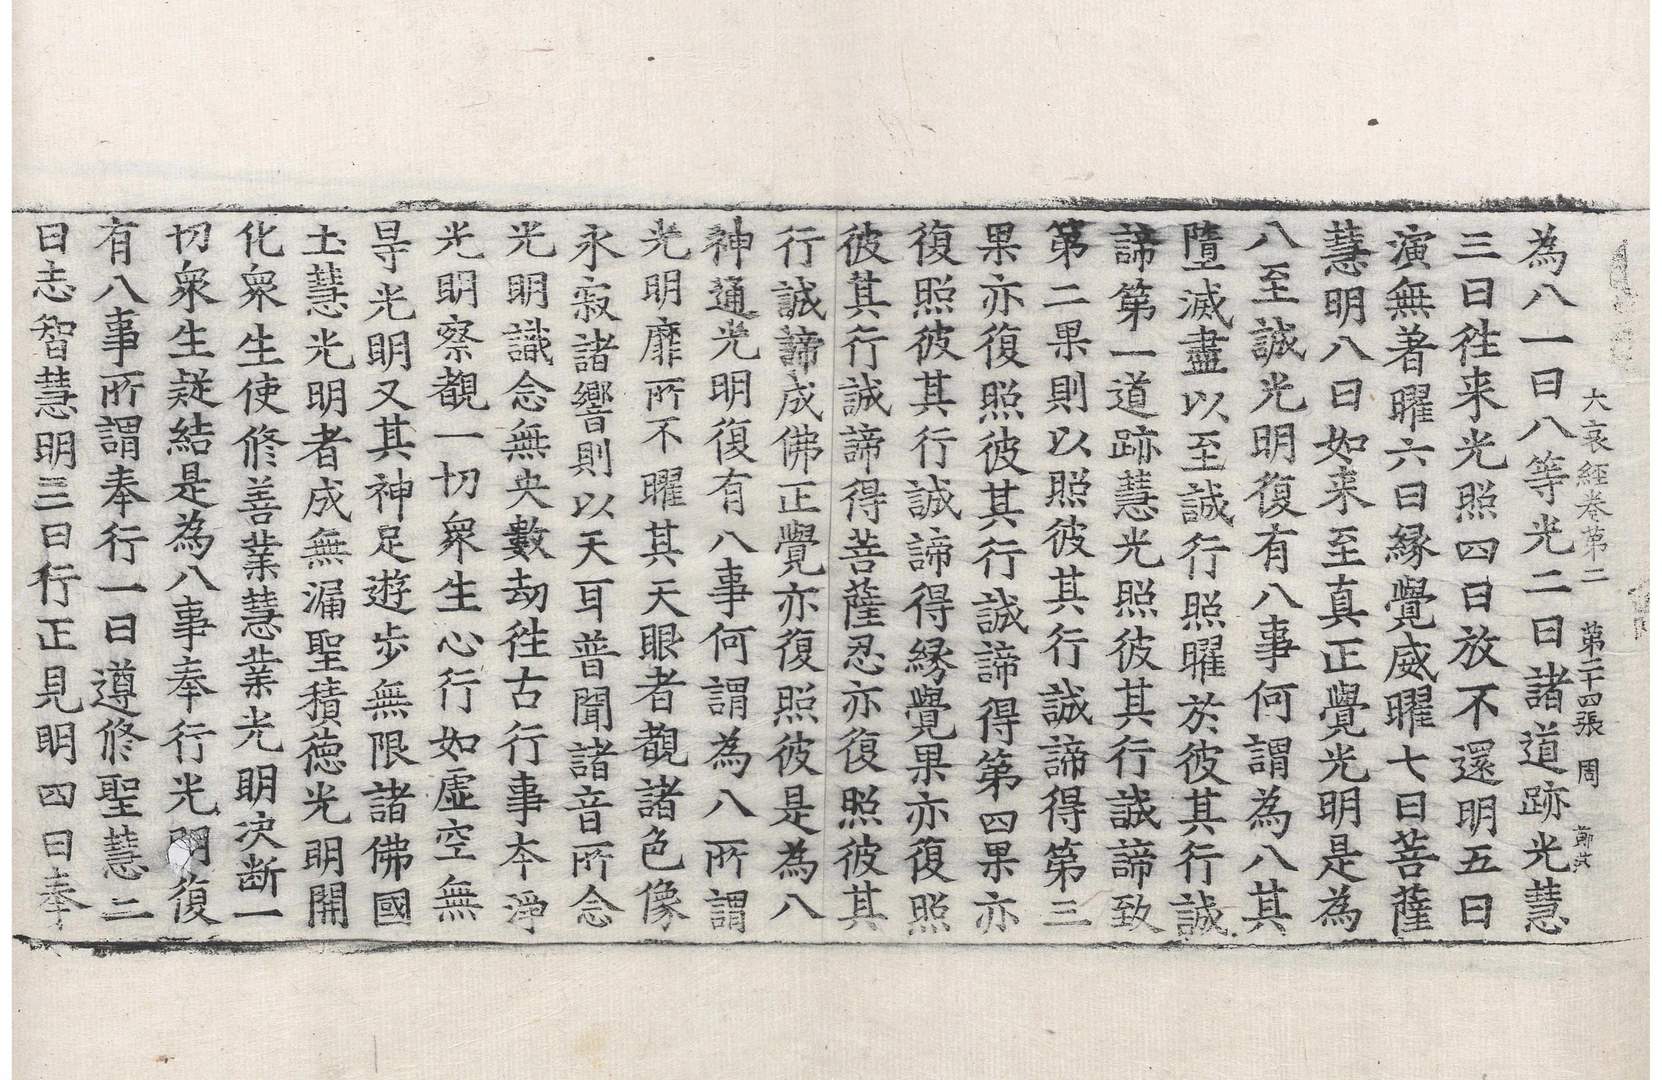 大哀經卷第二 第二十四張 周
為八一曰八等光二曰諸道跡光慧
三曰徃来光照四曰放不還明五曰
演無著曜六曰縁覺威曜七曰菩薩
慧明八曰如来至真正覺光明是為
八至誠光明復有八事何謂為八其
墮滅盡以至誠行照曜於彼其行誠
諦第一道跡慧光照彼其行誠諦致
第二果則以照彼其行誠諦得第三
果亦復照彼其行誠諦得第四果亦
復照彼其行誠諦得縁覺果亦復照
彼其行誠諦得菩薩忍亦復照彼其
行誠諦成佛正覺亦復照彼是為八
神通光明復有八事何謂為八所謂
光明靡所不曜其天眼者覩諸色像
永寂諸響則以天耳普聞諸音所念
光明識念無央數劫徃古行事本淨
光明察覩一切衆生心行如虛空無
㝵光明又其神足遊步無限諸佛國
土慧光明者成無漏聖積德光明開
化衆生使修善業慧業光明决断一
切衆生疑結是為八事奉行光明復
有八事所謂奉行一曰遵修聖慧二
曰志智慧明三曰行正見明四曰奉